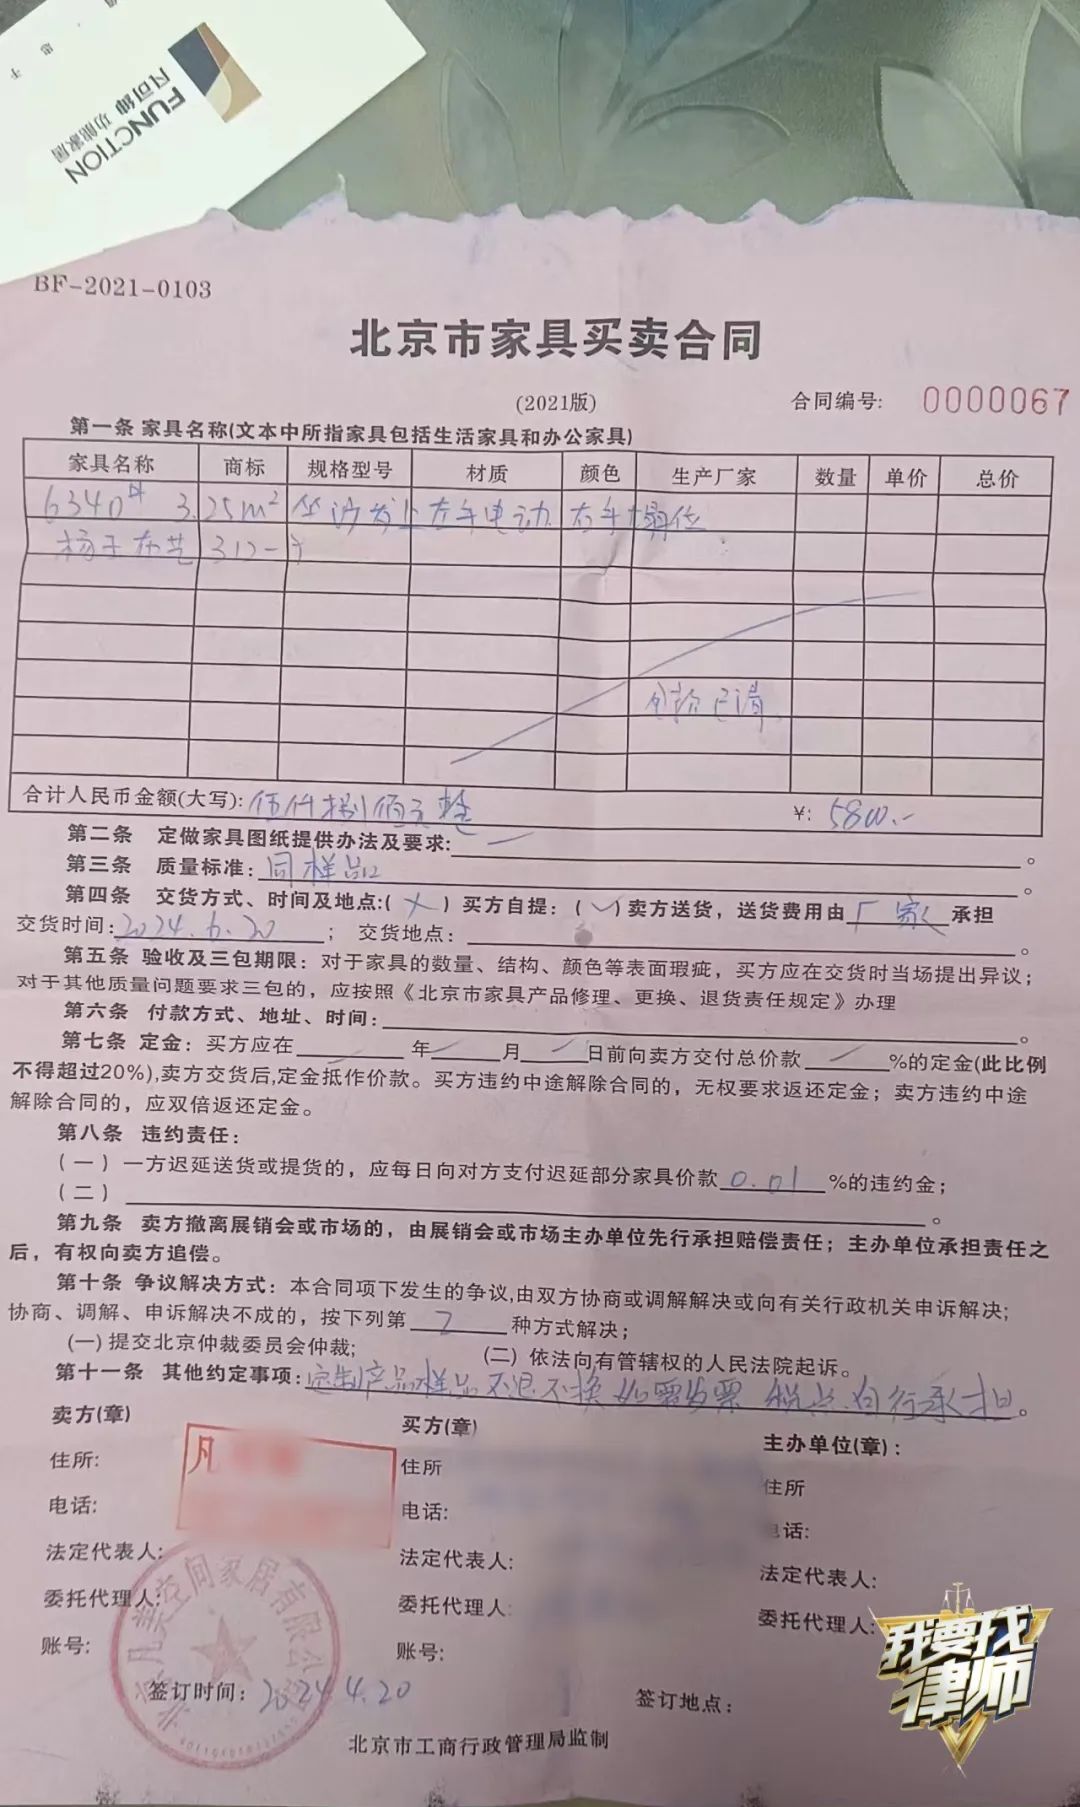 凡可绅 功能家居
FUNCTION
BF-2021-0103
北京市家具买卖合同
(2021版)
合同编号: 0000067
第一条 家具名称(文本中所指家具包括生活家具和办公家具)
家具名称 商标 规格型号 材质 颜色 生产厂家 数量 单价 总价
6340# 3.25m² 沙发 左手电动 右手 位
布艺 312-
已清
合计人民币金额(大写): 伍仟捌佰元整 ¥: 5800.-
第二条 定做家具图纸提供办法及要求: 。
第三条 质量标准: 同样品 。
第四条 交货方式、时间及地点:(×)买方自提:(✓)卖方送货，送货费用由厂家承担
交货时间: 2024.6.20 ; 交货地点: 。
第五条 验收及三包期限: 对于家具的数量、结构、颜色等表面瑕疵，买方应在交货时当场提出异议；
对于其他质量问题要求三包的，应按照《北京市家具产品修理、更换、退货责任规定》办理
第六条 付款方式、地址、时间: 。
第七条 定金: 买方应在 年 月 日前向卖方交付总价款 %的定金(此比例
不得超过20%),卖方交货后,定金抵作价款。买方违约中途解除合同的，无权要求返还定金；卖方违约中途
解除合同的，应双倍返还定金。
第八条 违约责任:
(一) 一方迟延送货或提货的，应每日向对方支付迟延部分家具价款 0.01 %的违约金；
(二) 。
第九条 卖方撤离展销会或市场的，由展销会或市场主办单位先行承担赔偿责任；主办单位承担责任之
后，有权向卖方追偿。
第十条 争议解决方式: 本合同项下发生的争议,由双方协商或调解解决或向有关行政机关申诉解决;
协商、调解、申诉解决不成的，按下列第 2 种方式解决；
(一)提交北京仲裁委员会仲裁; (二) 依法向有管辖权的人民法院起诉。
第十一条 其他约定事项: 定制产品样品不退不换 如需发票 税点自行承担。
卖方(章) 买方(章) 主办单位(章):
凡
住所: 住所 住所
电话: 电话: 电话:
法定代表人: 法定代表人: 法定代表人:
委托代理人: 委托代理人: 委托代理人:
账号: 账号:
空间家居有限公司
签订时间: 2024 4.20 签订地点:
北京市工商行政管理局监制
我要找
律师